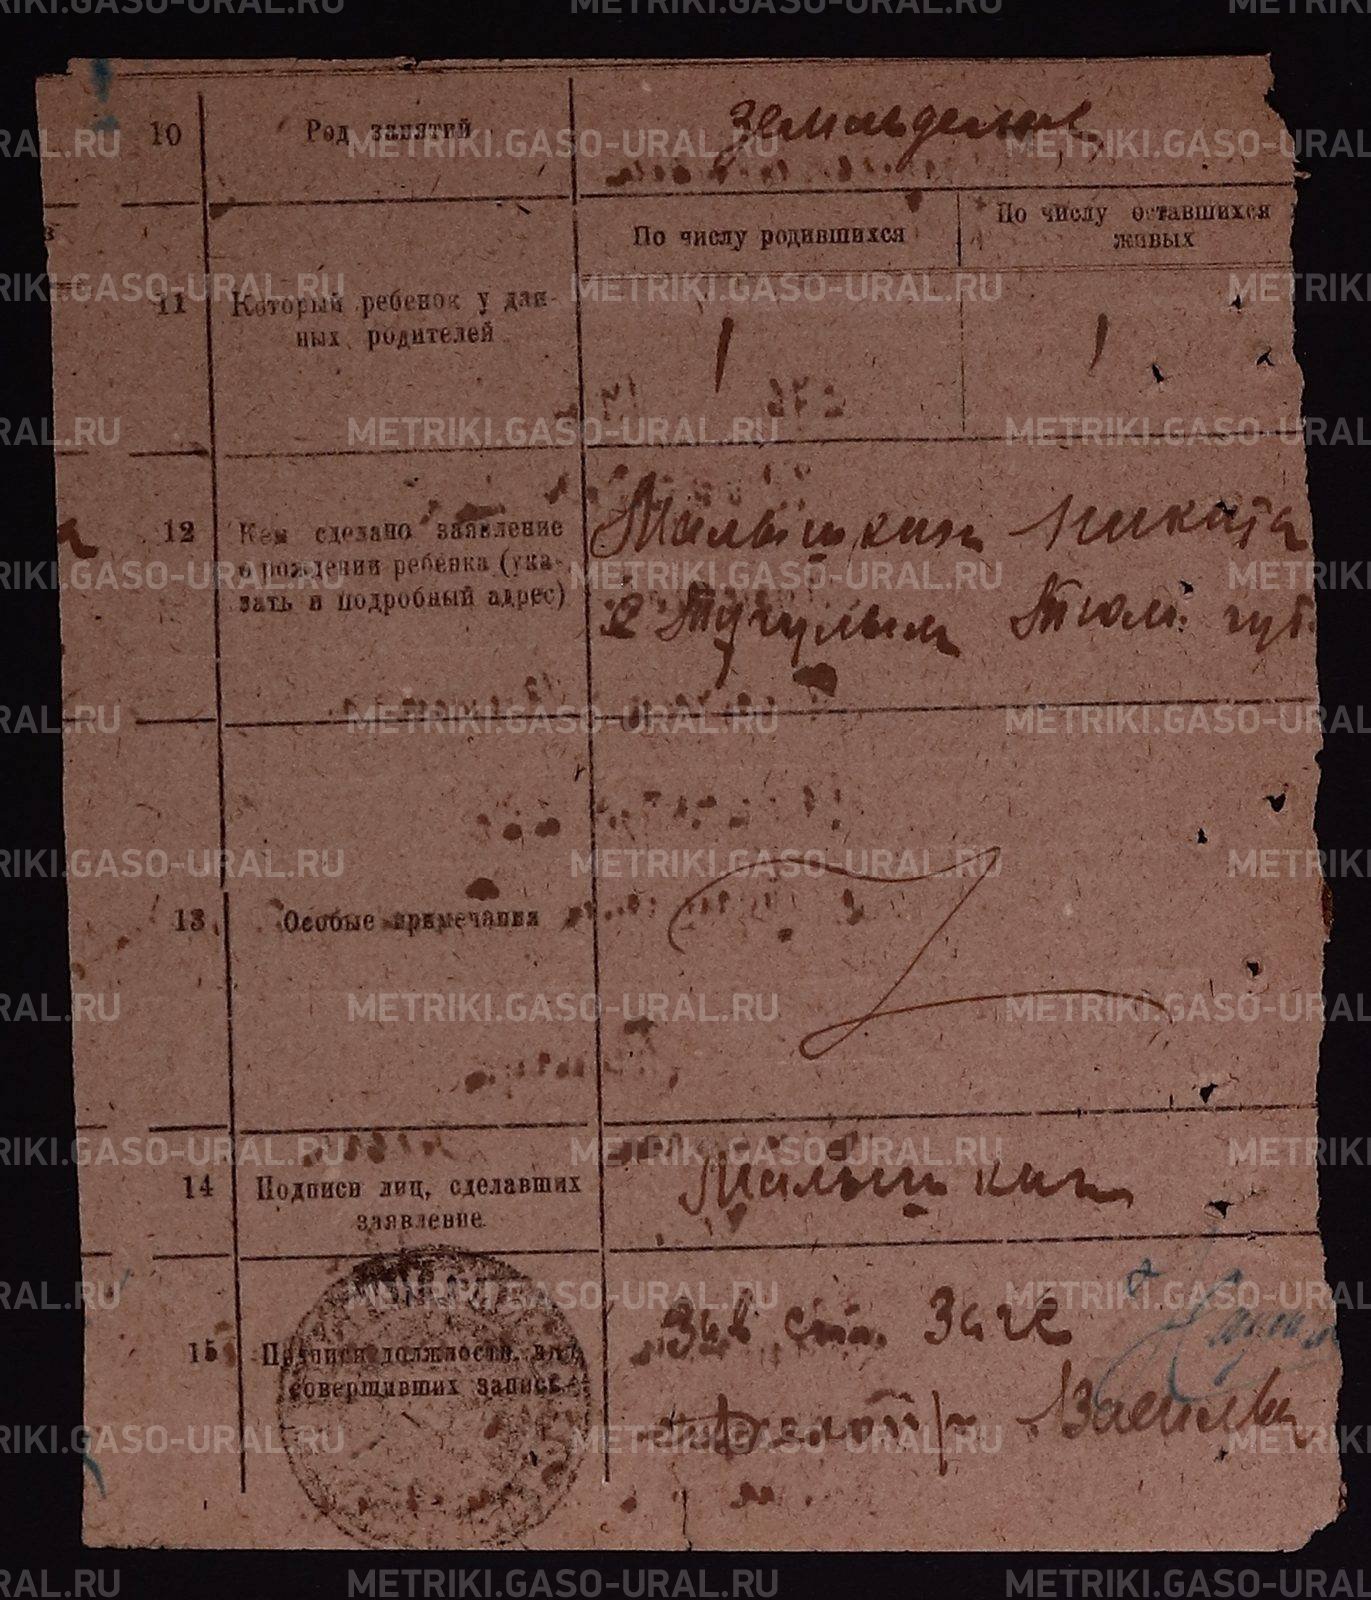 10 Род занятий земледелие
По числу родившихся По числу оставшихся
живых
11 Который ребенок у дан-
ных родителей
1 1
12 Кем сделано заявление
о рождении ребенка (ука-
зать и подробный адрес)
Малышкин Никита
с Тугулым Тюм. губ.
13 Особые примечания
14 Подписи лиц, сделавших
заявление.
Малышкин
15 Подписи должностн. лиц,
совершивших запись
Зав
Васильев
METRIKI.GASO-URAL.RU